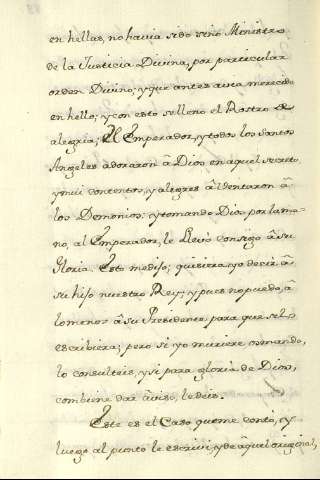 en hellas, no havia sido sino Ministro
de la Justicia Divina, por particular
orden Divino; y que antes avia merecido
en hello; y con esto se lleno el Rostro de
alegria; El Emperador, y todos los Santos
Angeles adoraron â Dios en aquel secreto
y mui contentos, y alegres âlentaron â
los Demonios: y tomando Dios por la ma-
no, al Emperador, le llevò consigo â su
Gloria. Esto me dijo; quisiera, yo decir â
su hijo nuestro Rey; y pues no puedo, â
lo menos â su Presidente, para que se lo
escribiera; pero si yo muriere
lo consulteis, y si para gloria de Dios,
combiene dar âviso, le deis.
Este es el Caso que me contò, y
luego al punto le escrivi, y de âquel original,